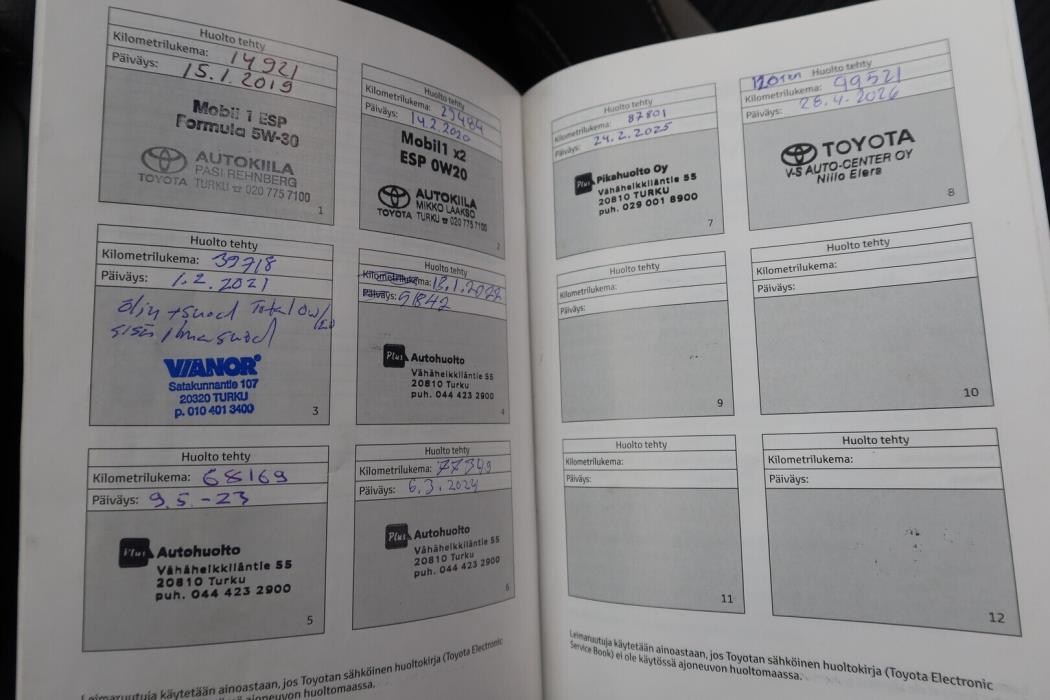 Huolto tehty
Kilometrilukema: 14921
Päiväys: 15.1.2019
Mobil 1 ESP
Formula 5W-30
TOYOTA
AUTOKIILA
PASI REHNBERG
TURKU ☎ 020 775 7100
1
Huolto tehty
Kilometrilukema: 25484
Päiväys: 14.2.2020
Mobil1 x2
ESP 0W20
TOYOTA
AUTOKIILA
MIKKO LAAKSO
TURKU ☎ 020 775 7100
2
Huolto tehty
Kilometrilukema: 39718
Päiväys: 1.2.2021
öljy + suod Total 0w/20
sisäilmasuod
VIANOR
Satakunnantie 107
20320 TURKU
p. 010 401 3400
3
Kilometrilukema: 18.1.2022
Päiväys: 51842
Plus Autohuolto
Vähäheikkiläntie 55
20810 Turku
puh. 044 423 2900
4
Huolto tehty
Kilometrilukema: 68169
Päiväys: 9.5.-23
Plus Autohuolto
Vähäheikkiläntie 55
20810 Turku
puh. 044 423 2900
5
Huolto tehty
Kilometrilukema: 77349
Päiväys: 6.3.2024
Plus Autohuolto
Vähäheikkiläntie 55
20810 Turku
puh. 044 423 2900
6
Leimaruutuja käytetään ainoastaan, jos Toyotan sähköinen huoltokirja (Toyota Electronic
ajoneuvon huoltomaassa.
Huolto tehty
Kilometrilukema: 87801
Päiväys: 24.2.2025
Plus Pikahuolto Oy
Vähäheikkiläntie 55
20810 TURKU
puh. 029 001 8900
7
Huolto tehty
Kilometrilukema: 99521
Päiväys: 28.4.2026
TOYOTA
V-S AUTO-CENTER OY
Niilo Elers
8
Huolto tehty
Kilometrilukema:
Päiväys:
9
Huolto tehty
Kilometrilukema:
Päiväys:
10
Huolto tehty
Kilometrilukema:
Päiväys:
11
Huolto tehty
Kilometrilukema:
Päiväys:
12
Leimaruutuja käytetään ainoastaan, jos Toyotan sähköinen huoltokirja (Toyota Electronic
Service Book) ei ole käytössä ajoneuvon huoltomaassa.